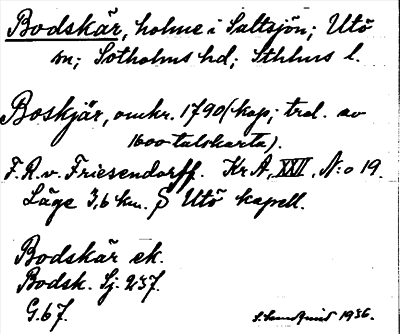 Bodskär, holme i Saltsjön; Utö
sn; Sotholms hd; Sthlms l.
Boskjär, omkr. 1790 (kop; trol. av
1600-talskarta).
F. R. v. Friesendorff. Kr A, XXII, N:o 19.
Läge 3,6 km. S Utö kapell.
Bodskär ek.
Bodsk. Sj. 237.
G. 67.
1936.